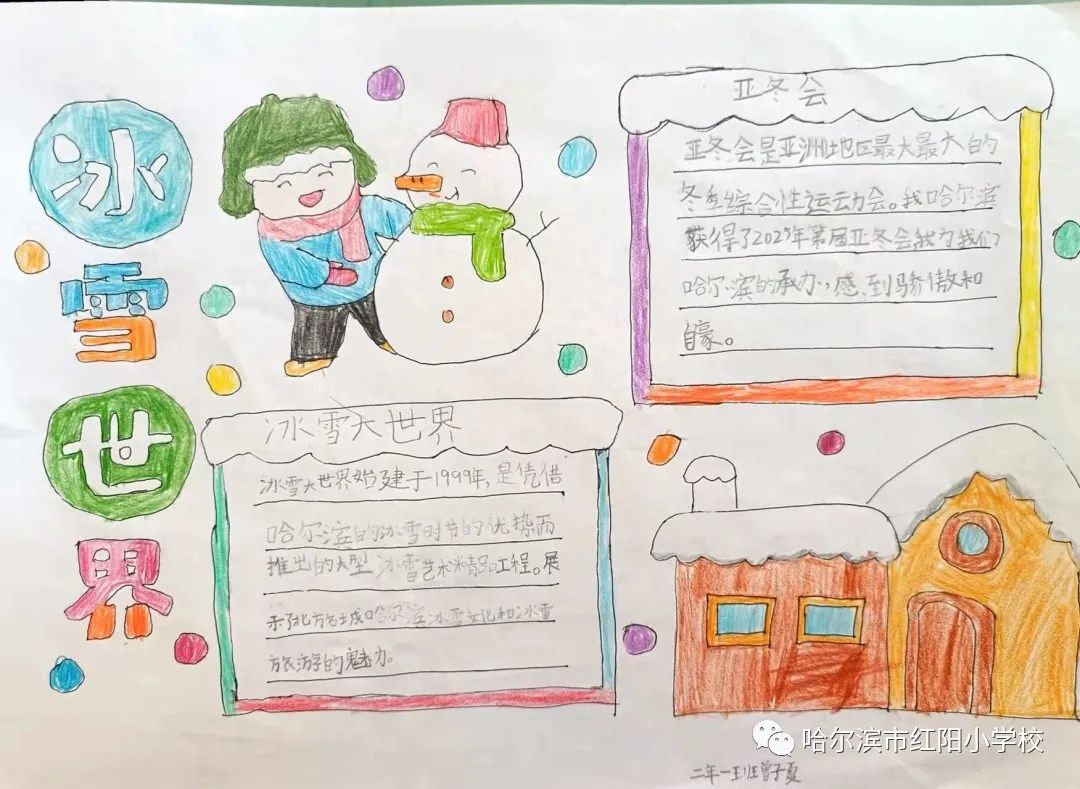 冰
雪
世
界
亚冬会
亚冬会是亚洲地区最大最大的
冬季综合性运动会。我哈尔滨
获得了2025年第届亚冬会我为我们
哈尔滨的承办,感到骄傲和
自豪。
冰雪大世界
冰雪大世界始建于1999年,是凭借
哈尔滨的冰雪时节的优势而
推出的大型冰雪艺术精品工程。展
示了北方名城哈尔滨冰雪文化和冰雪
旅游的魅力。
哈尔滨市红阳小学校
二年一班曾子夏